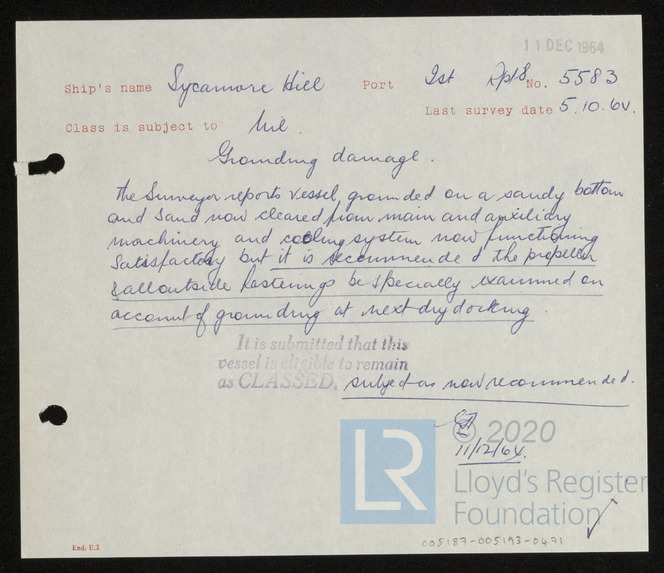 11 DEC 1964
Ship's name Sycamore Hill Port Ist Rpt 8 No. 5583
Last survey date 5.10.64.
Class is subject to Nil.
Grounding damage.
The Surveyor reports vessel, grounded on a sandy bottom
and sand now cleared from main and auxiliary
machinery and cooling system now functioning
satisfactorily but it is recommended the propeller
& all outside fastenings be specially examined on
account of grounding at next dry docking.
It is submitted that this
vessel is eligible to remain
as CLASSED. subject as now recommended.
11/12/64.
© 2020
LR
Lloyd's Register
Foundation
End. E.2
005187-005193-0471